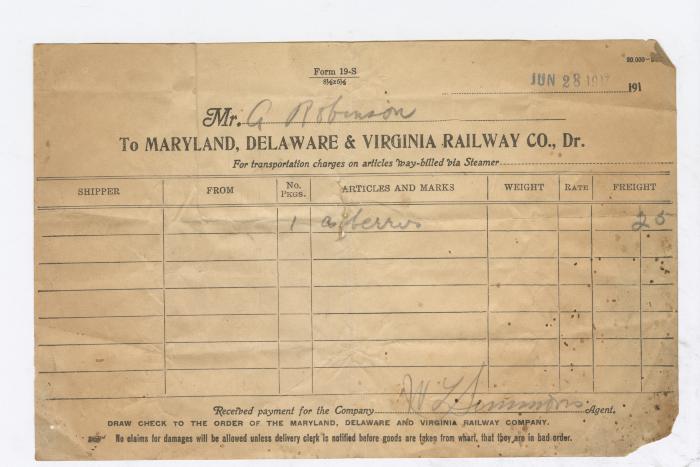 Form 19-S
8½x5½
20.000
JUN 28 1917 191
Mr. A Robinson
To MARYLAND, DELAWARE & VIRGINIA RAILWAY CO., Dr.
For transportation charges on articles way-billed via Steamer
SHIPPER FROM No. Pkgs. ARTICLES AND MARKS WEIGHT RATE FREIGHT
1 25
Received payment for the Company W L Simmons Agent.
DRAW CHECK TO THE ORDER OF THE MARYLAND, DELAWARE AND VIRGINIA RAILWAY COMPANY.
No claims for damages will be allowed unless delivery clerk is notified before goods are taken from wharf, that they are in bad order.